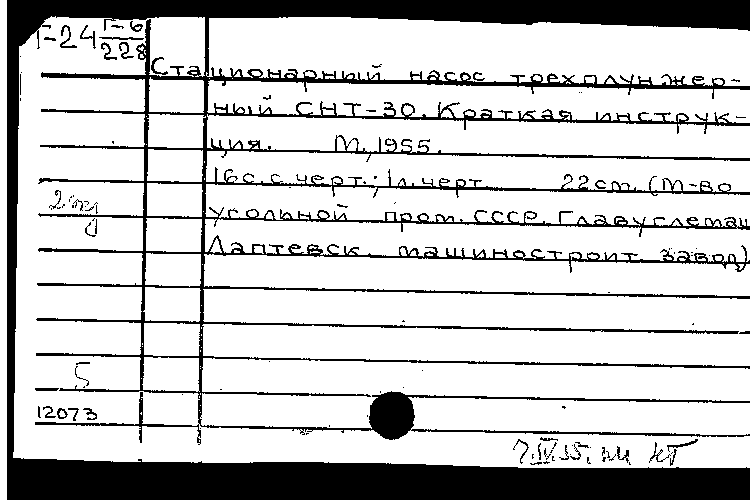 Г-24 Г-6
228
Стационарный насос трехплунжер-
ный СНТ-30. Краткая инструк-
ция. М., 1955.
16с. с черт.; 1л. черт. 22см. (М-во
угольной пром. СССР. Главуглемаш
Лаптевск. машиностроит. завод)
5
12073